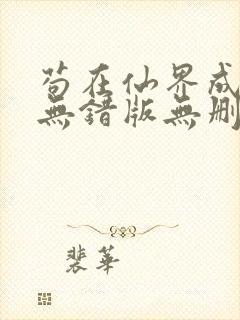 苟在仙界成
無錯版無刪
裴華